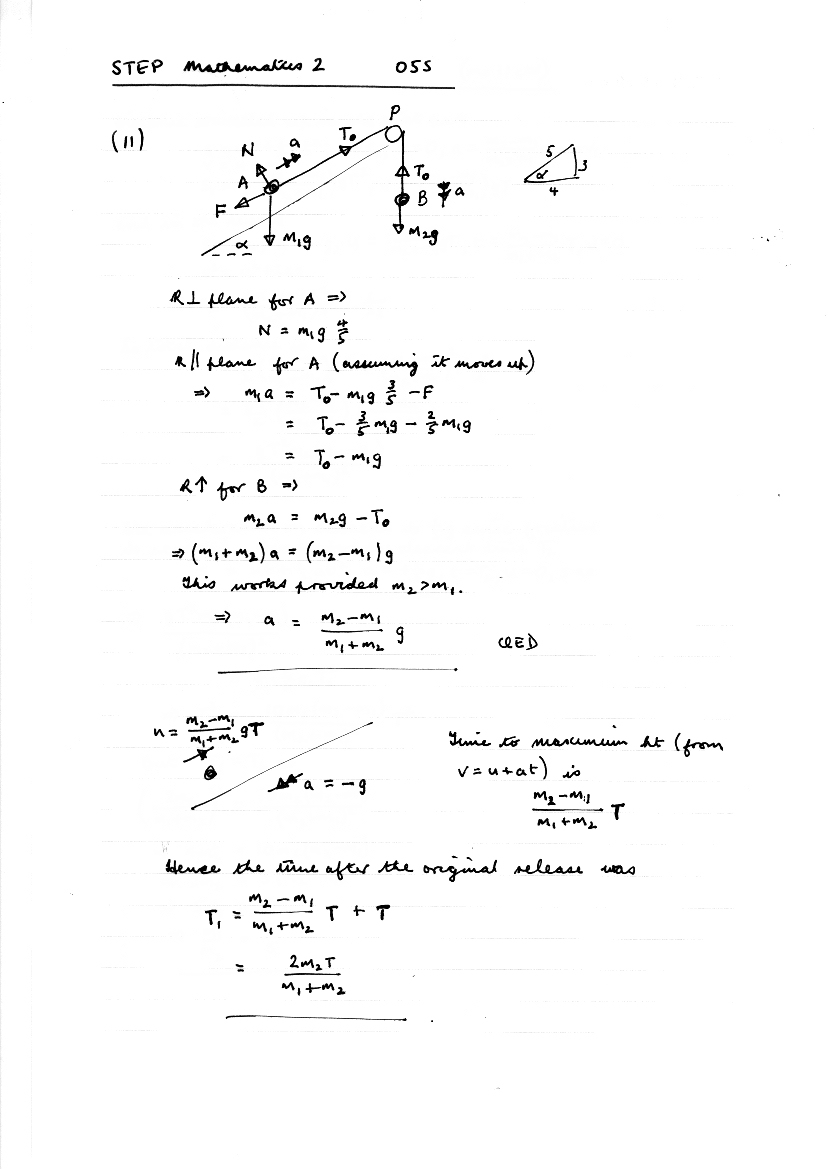 STEP Mathematics 2 05S
(11)
P
N a T₀
A
F
α M₁g
T₀
B a
M₂g
5 3
α
4
R⊥ plane for A =>
N = m₁g 4/5
R// plane for A (assuming it moves up)
=> m₁a = T₀ - m₁g 3/5 - F
= T₀ - 3/5 m₁g - 2/5 m₁g
= T₀ - m₁g
R↑ for B =>
m₂a = m₂g - T₀
=> (m₁+m₂)a = (m₂-m₁)g
This works provided m₂>m₁.
=> a = (m₂-m₁)/(m₁+m₂) g QED
u = (m₂-m₁)/(m₁+m₂) gT
a = -g
Time to maximum ht (from
v=u+at) is
(m₂-m₁)/(m₁+m₂) T
Hence the time after the original release was
T₁ = (m₂-m₁)/(m₁+m₂) T + T
= 2m₂T/(m₁+m₂)